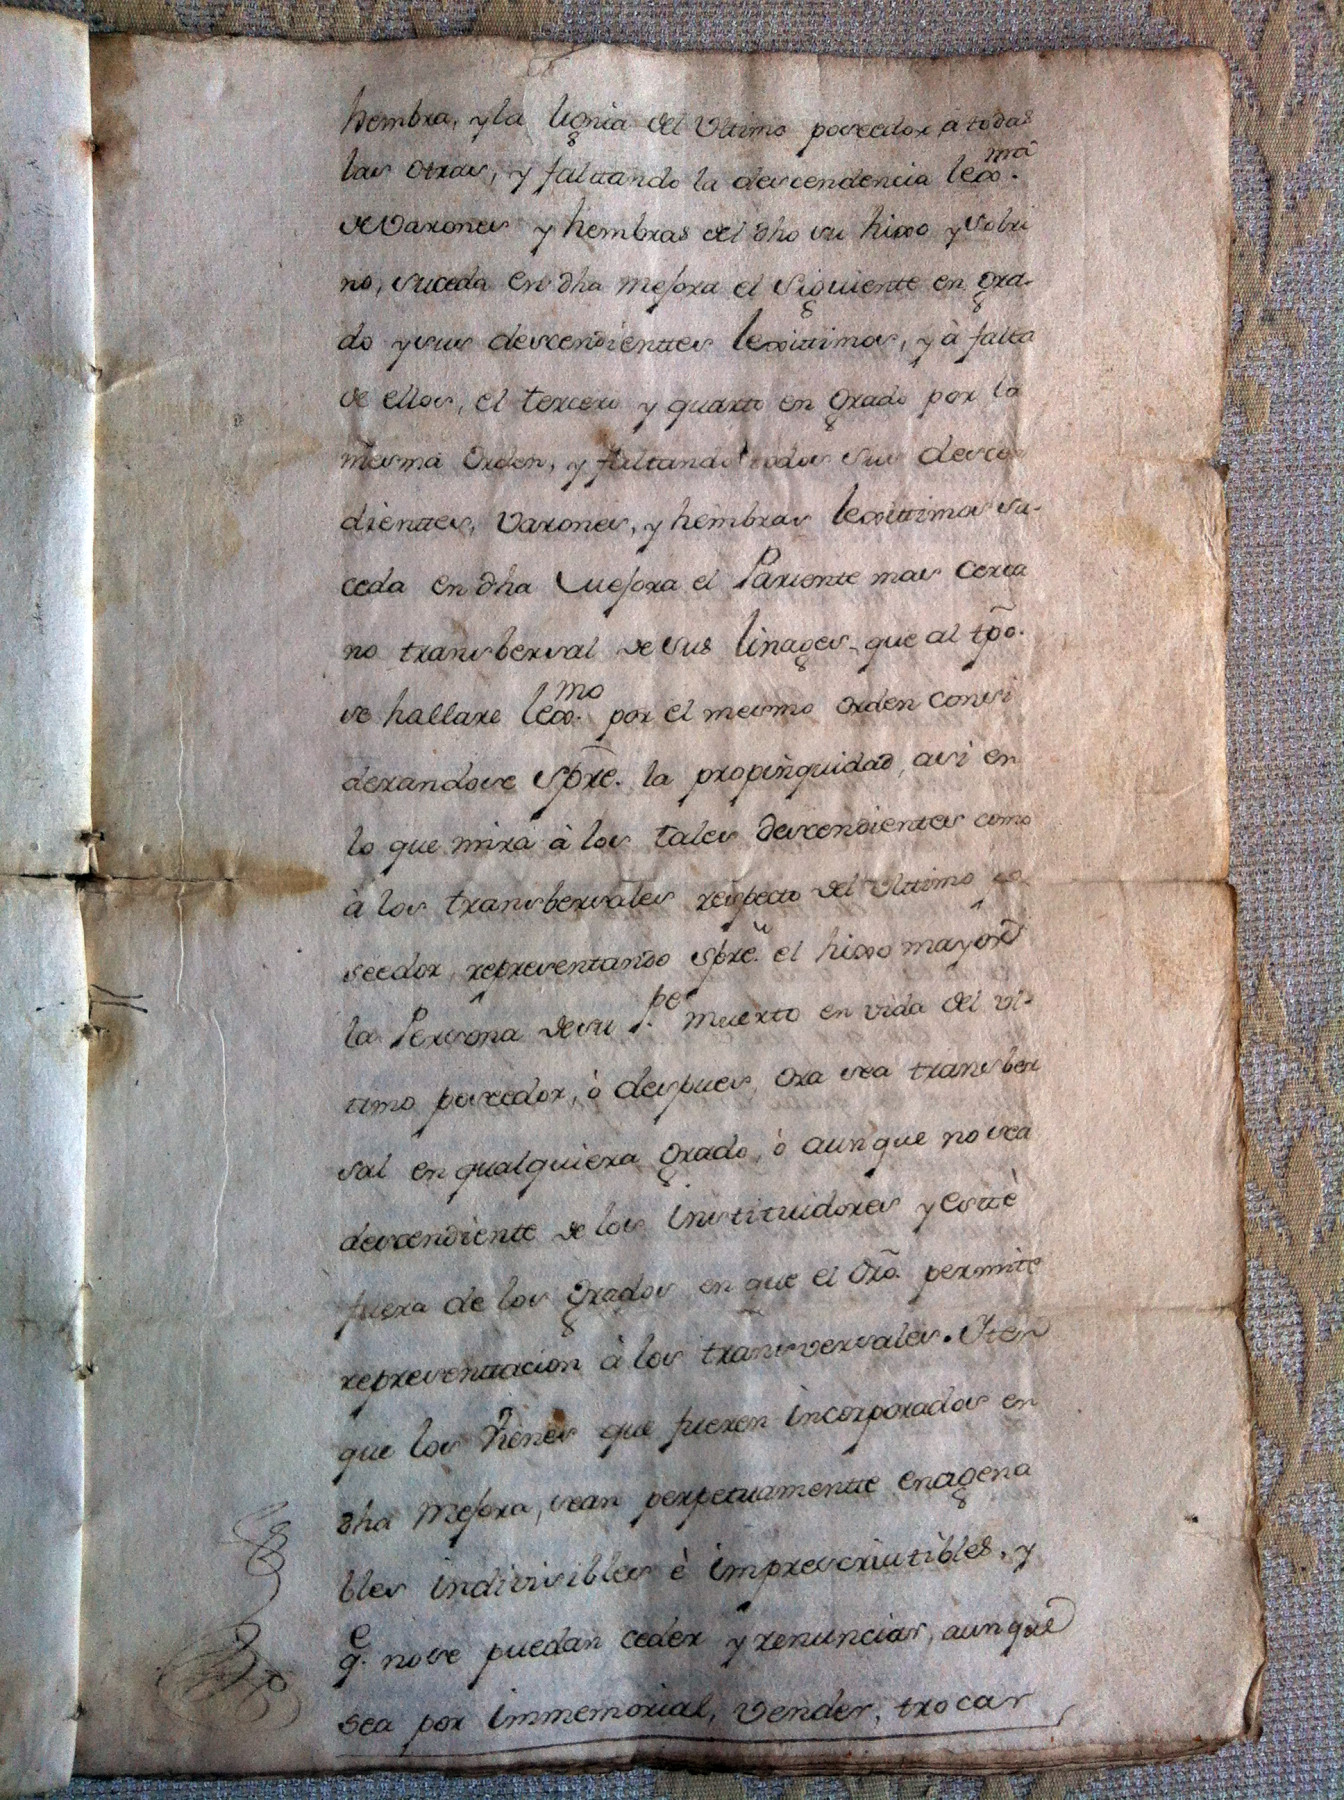 hembra, y la lignia del Ultimo poseedor, à todas
las otras, y faltando la descendencia lexma.
de Varones y hembras del dho su hixo y Sobri
no, suceda en dha mejora el siguiente en gra-
do y sus descendienttes lexittimos, y à falta
de ellos, el tercero y quarto en grado por la
mesma Orden, y faltando todos sus descen
dienttes, Varones, y hembras lexittimos su-
ceda en dha Mejora el Pariente mas Cerca
no transbersal de sus linages que al tpo.
se hallare lexmo. por el mesmo orden consi
derandose spre. la propinquidad, asi en
lo que mira à los tales descendientes como
à los transbersales respecto del Ulttimo po
seedor, representando spre. el hixo mayor
la Persona de su Pe. muerto en vida del Ul-
timo poseedor, ò despues, Ora sea transber
sal en qualquiera grado, ò aunque no sea
descendiente de los Instituidores y esttè
fuera de los grados en que el Dro. permite
representtacion à los transversales. Iten
que los Vienes que fueren incorporados en
dha Mejora, sean perpetuamentte enagena
bles indivisibles è imprescriutibles, y
qe. no se puedan ceder y renunciar, aunque
sea por immemorial, vender, trocar